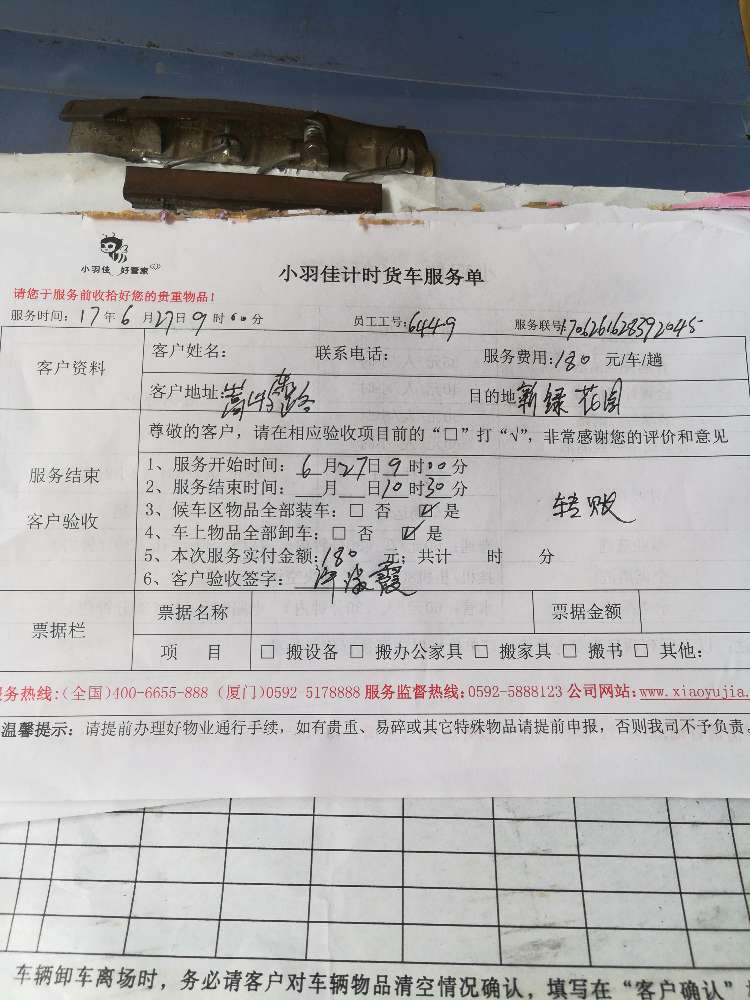 小羽佳 好管家
小羽佳计时货车服务单
请您于服务前收拾好您的贵重物品!
服务时间: 17年6月27日9时00分 员工工号: 6449 服务联号: 1706261628392045
客户资料
客户姓名: 联系电话: 服务费用: 180 元/车/趟
客户地址: 路 目的地 新绿花园
服务结束
客户验收
尊敬的客户,请在相应验收项目前的“□”打“√”,非常感谢您的评价和意见
1、服务开始时间: 6月27日9时00分
2、服务结束时间: 月 日10时30分
3、候车区物品全部装车: □ 否 ☑ 是
转账
4、车上物品全部卸车: □ 否 ☑ 是
5、本次服务实付金额: 180 元; 共计 时 分
6、客户验收签字: 霞
票据栏
票据名称 票据金额
项 目 □ 搬设备 □ 搬办公家具 □ 搬家具 □ 搬书 □ 其他:
务热线:(全国)400-6655-888 (厦门)0592 5178888 服务监督热线: 0592-5888123 公司网站: www.xiaoyujia.
温馨提示: 请提前办理好物业通行手续,如有贵重、易碎或其它特殊物品请提前申报,否则我司不予负责。
车辆卸车离场时,务必请客户对车辆物品清空情况确认,填写在“客户确认”